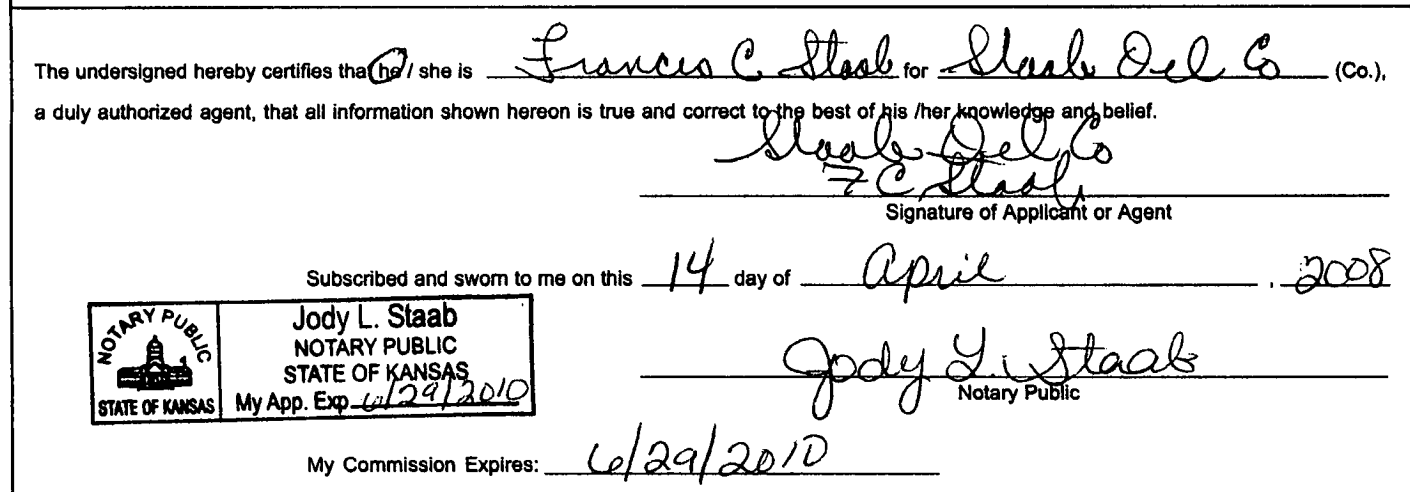 The undersigned hereby certifies that he / she is Francis C Staab for Staab Oil Co (Co.),
a duly authorized agent, that all information shown hereon is true and correct to the best of his /her knowledge and belief.
Staab Oil Co
F C Staab
Signature of Applicant or Agent
Subscribed and sworn to me on this 14 day of April , 2008
NOTARY PUBLIC
STATE OF KANSAS
Jody L. Staab
NOTARY PUBLIC
STATE OF KANSAS
My App. Exp 6/29/2010
Jody L. Staab
Notary Public
My Commission Expires: 6/29/2010